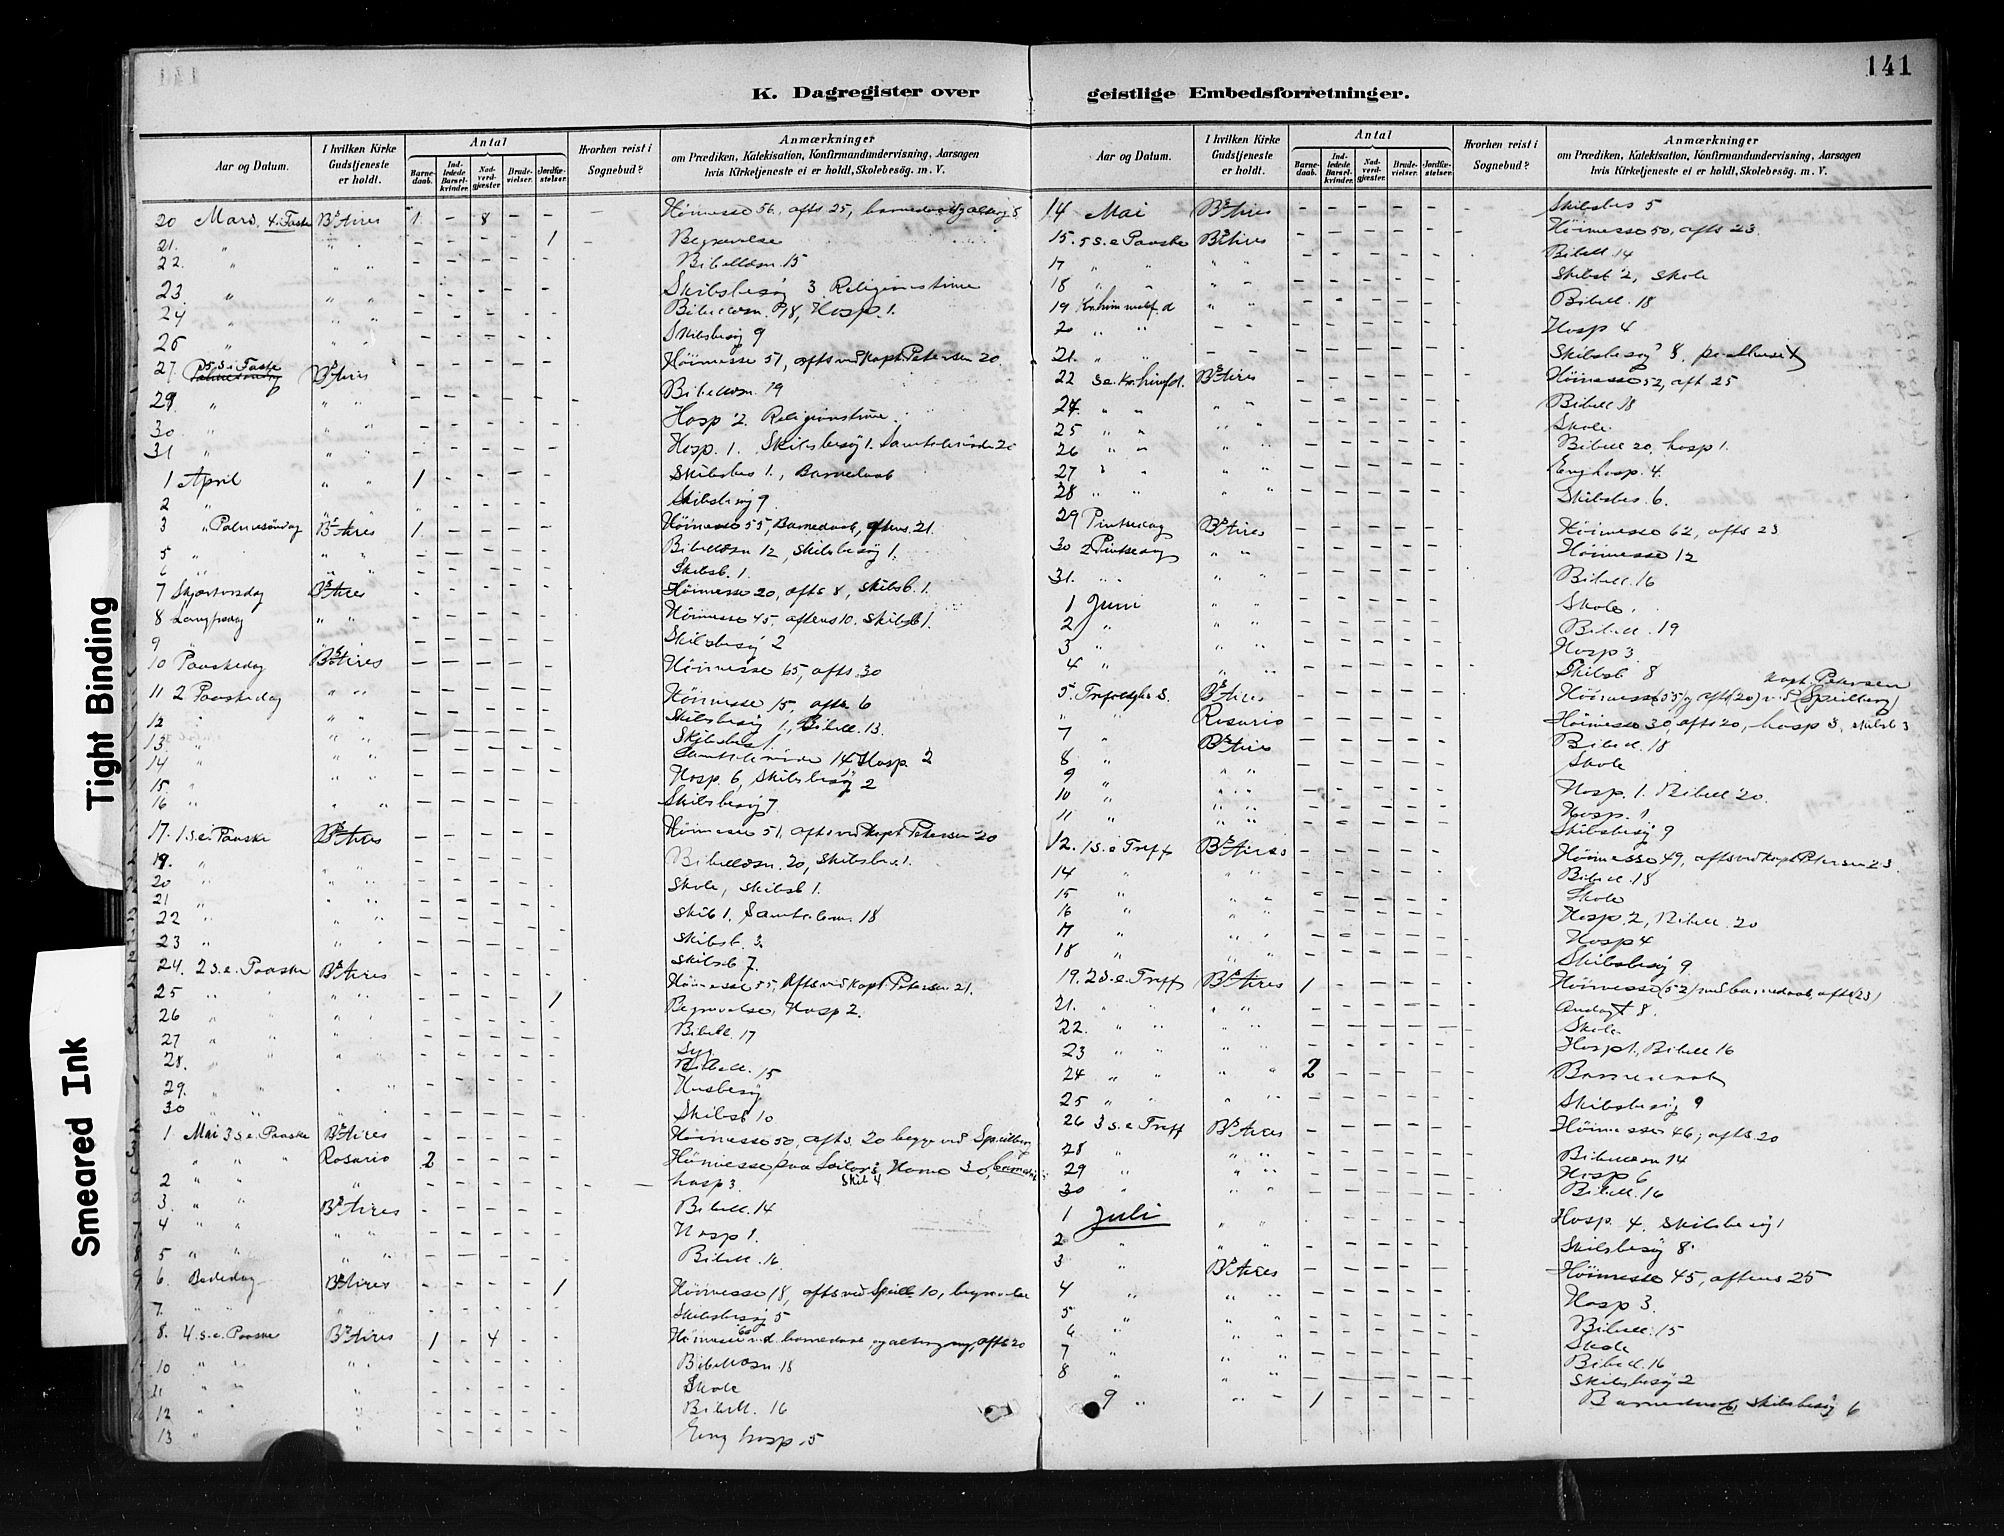 141
K. Dagregister over geistlige Embedsforretninger.
Aar og Datum. I hvilken Kirke Gudstjeneste er holdt. Antal Barnedaab. Indledede Barselkvinder. Nadverdgjæster. Brudevielser. Jordfæstelser. Hvorhen reist i Sognebud? Anmærkninger om Prædiken, Katekisation, Konfirmandundervisning, Aarsagen hvis Kirketjeneste ei er holdt, Skolebesøg. m. V.
20 Mars, 4. i Faste Bs Aires 1 - 8 - - Høimesse 56, afts 25, barnedaab og alterg 8
21. " " " - - - - 1 - Begravelse
22. " " " - - - - - Bibellæsn. 15
23. " " " - - - - - Skibsbesøg 3 Religionstime
24 " " " - - - - - Bibellæsn. 18, Hosp. 1.
26 " - - - - - Skibsbesøg 9
27. 5 s. i Faste Palmesøndag Bs Aires - - - - - Høimesse 51, afts ved Kapt. Petersen 20.
29. " - - - - - Bibellæsn. 19
30. " - - - - - Hosp 2. Religionstime
31 " " " - - - - - Hosp. 1. Skibsbesøg 1. Samtalemøde 20
1 April " " 1 - - - - Skibsbes 1., Barnedaab
2 " " " - - - - - Skibsbesøg 9
3 " Palmesøndag Bs Aires 1 - - - - Høimesse 55, Barnedaab, aftens. 21.
5 " " " - - - - - Bibellæsn 12, Skibsbesøg 1.
6 " " " - - - - - Skibsb. 1.
7 Skjærtorsdag Bs Aires - - - - - Høimesse 20, afts 8, Skibsb. 1.
8 Langfredag " " - - - - - Høimesse 45, aftens 10. Skibsb 1.
9 " - - - - - Skibsbesøg 2
10 Paaskedag Bs Aires - - - - - Høimesse 65, afts. 30
11 2 Paaskedag " " - - - - - Høimesse 15, aften 6
12 " - - - - - Skibsbesøg 1, Bibell. 13.
13 " - - - - - Skibsbes 1.
14 " - - - - - Samtalemøde 14 Hosp. 2
15 " - - - - - Hosp. 6, Skibsbesøg 2
16 " " " - - - - - Skibsbesøg 7
17. 1 s. e. Paaske Bs Aires - - - - - Høimesse 51, afts ved Kapt. Petersen 20
19. " - - - - - Bibellæsn. 20, Skibsbes. 1.
20 " - - - - - Skole, Skibsb 1.
21 " " " - - - - - Skib 1. Samtalem. 18
22 " " " - - - - - Skibsb. 3.
23 " " " - - - - - Skibsb 7.
24. 2 s. e. Paaske Bs Aires - - - - - Høimesse 55, Afts ved Kapt. Petersen 21.
25 " " " " - - - - 1 Begravelse, Hosp 2.
26 " " " " - - - - - Bibell. 17
27 " " " " - - - - -
28. " " " " - - - - - Bibell. 15
29. " " " " - - - - - Husbesøg
30 " " " " - - - - - Skibsb 10
1 Mai 3 s. e. Paaske Bs Aires - - - - - Høimesse 50, afts. 20 begge ved Speilberg
" " " Rosario 2 - - - - Høimesse paa Sailors Home 30,
2 " " " - - - - - - hosp 3. Skib 4
3. " " Bs Aires - - - - - Bibell. 14
4 " " " " - - - - - Hosp 1.
5 " " " " - - - - - Bibell. 16.
6. Bededag Bs Aires - - - - 1 Høimesse 18, afts ved Speilb 10, begravelse
7. " " " - - - - - Skibsbesøg 5
8. 4. s. e. Paaske Bs Aires 1 - 4 - - Høimesse 60 ved barnedaab, og altergang, afts 20
10 " " " " - - - - - Bibellæsn 18
11 " " " - - - - - Skole
12 " " " - - - - - Bibell. 16
13 " " - - - - - Eng hosp. 5
Aar og Datum. I hvilken Kirke Gudstjeneste er holdt. Antal Barnedaab. Indledede Barselkvinder. Nadverdgjæster. Brudevielser. Jordfæstelser. Hvorhen reist i Sognebud? Anmærkninger om Prædiken, Katekisation, Konfirmandundervisning, Aarsagen hvis Kirketjeneste ei er holdt, Skolebesøg. m. V.
14 Mai Bs Aires - - - - - Skibsbes 5
15. 5 s. e Paaske Bs Aires - - - - - Høimesse 50, afts 23.
17 " " " " - - - - - Bibell. 14
18 " " " " - - - - - Skibsb 2, Skole
19 Kr. himmelf. d " " - - - - - Bibell. 18
20 " " - - - - - Hosp 4
21. " " - - - - - Skibsbesøg 8,
22 s. e. Kr. himfd. Bs Aires - - - - - Høimesse 52, aft. 25
24. " " " " - - - - - Bibell 18
25 " " " " - - - - - Skole.
26 " " " " - - - - - Bibell 20, hosp 1.
27 " " " " - - - - - Eng hosp. 4.
28 " " " " - - - - - Skibsbes 6.
29 Pintsedag Bs Aires - - - - - Høimesse 62, afts 23
30 2 Pintsedag " " - - - - - Høimesse 12
31. " " " " - - - - - Bibell. 16
1 Juni " " - - - - - Skole.
2 " " " - - - - - Bibell. 19
3 " " " - - - - - Hosp 3.
4 " " " - - - - - Skibsb 8
5. Trefoldighs S. Bs Aires - - - - - Høimesse (55) og afts (20) v. Kapt. Petersen (Speilberg)
" " Rosario - - - - - Høimesse 30, afts 20, hosp 3, Skibsb 3
7 " Bs Aires - - - - - Bibell. 18
8 " " " - - - - - Skole
9 " " " - - - - -
10 " " " - - - - - Hosp. 1. Bibell 20.
11 " " " - - - - - Hosp. 1
Skibsbesøg 9
12. 1 s. e Treff Bs Aires - - - - - Høimesse 49, afts ved Kapt. Petersen 23.
14 " " " - - - - - Bibell. 18
15 " " " - - - - - Skole
16 " " " - - - - - Hosp. 2, Bibell. 20
17 " " " - - - - - Hosp 4
18 " " " - - - - - Skibsbesøg 9
19. 2 s. e. Treff Bs Aires 1 - - - - Høimesse (52) med barnedaab, afts (23)
21. " " " " - - - - - Andagt 8.
22. " " " " - - - - - Skole.
23 " " " " - - - - - Hosp 1., Bibell 16
24 " " " " 2 - - - - Barnedaab
25 " " " " - - - - - Skibsbesøg 9
26 3 s. e Treff Bs Aires - - - - - Høimesse 46, afts 20
28 " " " - - - - - Bibellæsn 14
29 " " " - - - - - Hosp 6
30 " " " - - - - - Bibell. 16
1 Juli " " - - - - - Hosp. 4. Skibsbesøg 1
2 " " " - - - - - Skibsbesøg 8.
3 " Bs Aires - - - - - Høimesse 45, aftens 25
4 " " " - - - - - Hosp 3.
5 " " " - - - - - Bibell. 15
6 " " " - - - - - Skole
7 " " " - - - - - Bibell. 16
8 " " " - - - - - Skibsbesøg 2
9 " " - 1 - - - - Barnedaab, Skibsbesøg 6
Tight Binding
Smeared Ink